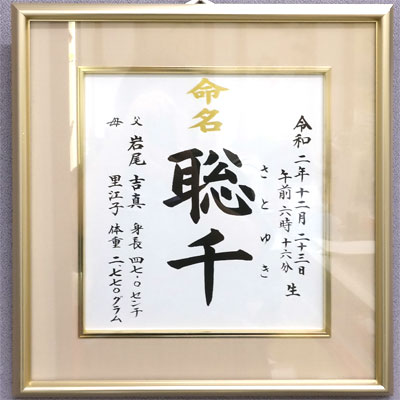 命名
令和二年十二月二十三日
午前六時十六分 生
さとゆき
聡千
父 岩尾 吉真 身長 四七・〇センチ
母 里江子 体重 二、七七〇グラム